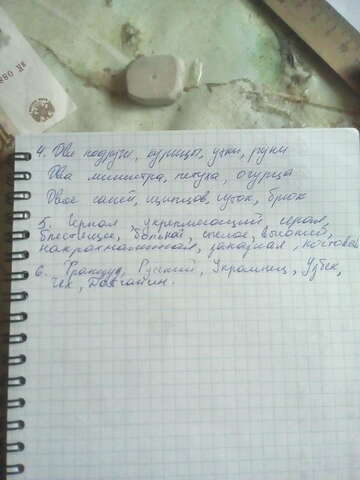 4. Две подруги, курицы, утки, руки
Два министра, петуха, огурца
Двое саней, щипцов, суток, брюк
5. Черная, укрепляющий
блестящее, больной, спелое, высокий,
накрахмаленная, западная, почтовая
6. Француз, Русский, Украинец, Узбек,
Чех,